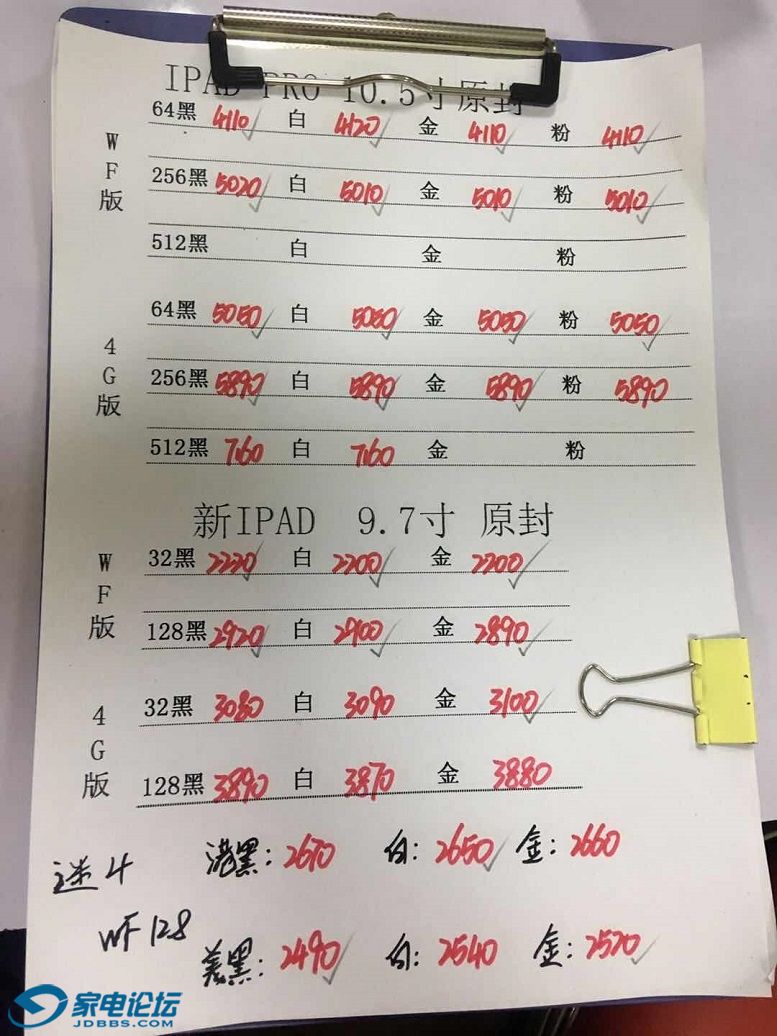 IPAD PRO 10.5寸原封
WF版
64黑 4110 白 4120 金 4110 粉 4110
256黑 5020 白 5010 金 5010 粉 5010
512黑 白 金 粉
4G版
64黑 5050 白 5050 金 5050 粉 5050
256黑 5890 白 5890 金 5890 粉 5890
512黑 7160 白 7160 金 粉
新IPAD 9.7寸 原封
WF版
32黑 2220 白 2200 金 2200
128黑 2920 白 2900 金 2890
4G版
32黑 3080 白 3090 金 3100
128黑 3890 白 3870 金 3880
迷4 港黑:2670 白:2650 金:2660
WF 128 美黑:2490 白:2540 金:2520
家电论坛
JDBBS.COM